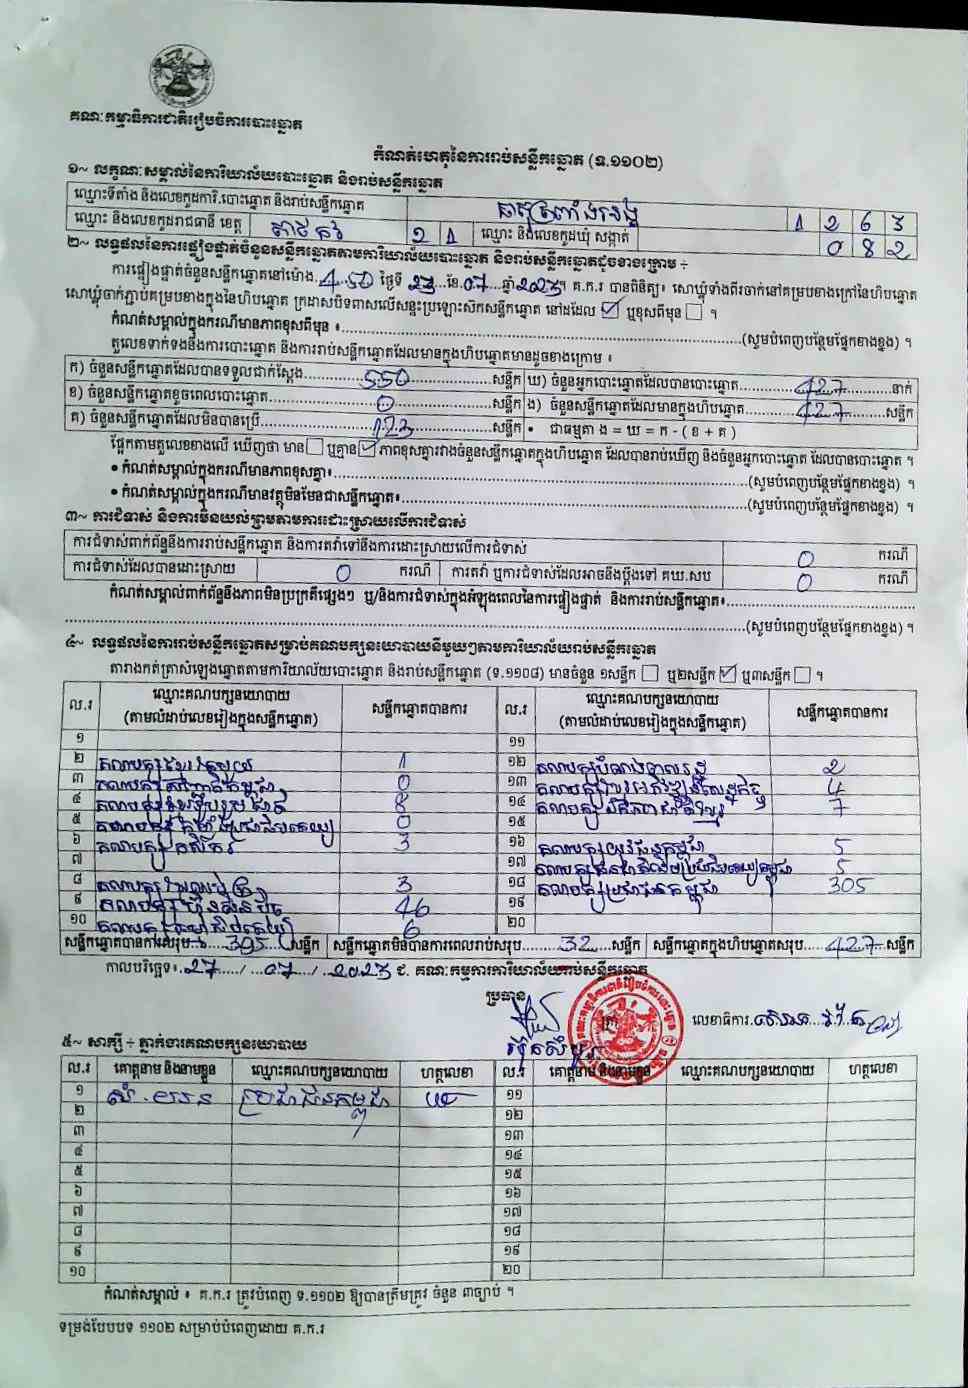 គណៈកម្មាធិការជាតិរៀបចំការបោះឆ្នោត
កំណត់ហេតុនៃការរាប់សន្លឹកឆ្នោត (ទ.១១០២)
១~ លក្ខណៈសម្គាល់នៃការិយាល័យបោះឆ្នោត និងរាប់សន្លឹកឆ្នោត
ឈ្មោះទីតាំង និងលេខកូដការិ.បោះឆ្នោត និងរាប់សន្លឹកឆ្នោត 1 2 6 3
ឈ្មោះ និងលេខកូដរាជធានី ខេត្ត តាកែវ 2 1 ឈ្មោះ និងលេខកូដឃុំ សង្កាត់ 0 8 2
២~ លទ្ធផលនៃការផ្ទៀងផ្ទាត់ចំនួនសន្លឹកឆ្នោតតាមការិយាល័យបោះឆ្នោត និងរាប់សន្លឹកឆ្នោតដូចខាងក្រោម ÷
ការផ្ទៀងផ្ទាត់ចំនួនសន្លឹកឆ្នោតនៅម៉ោង 4:50 ថ្ងៃទី 23 ខែ 07 ឆ្នាំ 2023។ គ.ក.រ បានពិនិត្យ៖ សោឃ្លុំទាំងពីរចាក់នៅគម្របខាងក្រៅនៃហិបឆ្នោត
សោឃ្លុំចាក់ភ្ជាប់គម្របខាងក្នុងនៃហិបឆ្នោត ក្រដាសបិទពាសលើសន្ទះប្រឡោះសិកសន្លឹកឆ្នោត នៅដដែល ☑ ឬខុសពីមុន ☐ ។
កំណត់សម្គាល់ក្នុងករណីមានភាពខុសពីមុន ៖ (សូមបំពេញបន្ថែមផ្នែកខាងខ្នង) ។
តួលេខទាក់ទងនឹងការបោះឆ្នោត និងការរាប់សន្លឹកឆ្នោតដែលមានក្នុងហិបឆ្នោតមានដូចខាងក្រោម ៖
ក) ចំនួនសន្លឹកឆ្នោតដែលបានទទួលជាក់ស្តែង 550 សន្លឹក ឃ) ចំនួនអ្នកបោះឆ្នោតដែលបានបោះឆ្នោត 427 នាក់
ខ) ចំនួនសន្លឹកឆ្នោតខូចពេលបោះឆ្នោត 0 សន្លឹក ង) ចំនួនសន្លឹកឆ្នោតដែលមានក្នុងហិបឆ្នោត 427 សន្លឹក
គ) ចំនួនសន្លឹកឆ្នោតដែលមិនបានប្រើ 123 សន្លឹក • ជាធម្មតា ង = ឃ = ក - ( ខ + គ )
ផ្អែកតាមតួលេខខាងលើ ឃើញថា មាន ☐ ឬគ្មាន ☑ ភាពខុសគ្នារវាងចំនួនសន្លឹកឆ្នោតក្នុងហិបឆ្នោត ដែលបានរាប់ឃើញ និងចំនួនអ្នកបោះឆ្នោត ដែលបានបោះឆ្នោត ។
• កំណត់សម្គាល់ក្នុងករណីមានភាពខុសគ្នា៖ (សូមបំពេញបន្ថែមផ្នែកខាងខ្នង) ។
• កំណត់សម្គាល់ក្នុងករណីមានវត្ថុមិនមែនជាសន្លឹកឆ្នោត៖ (សូមបំពេញបន្ថែមផ្នែកខាងខ្នង) ។
៣~ ការជំទាស់ និងការមិនយល់ព្រមតាមការដោះស្រាយលើការជំទាស់
ការជំទាស់ពាក់ព័ន្ធនឹងការរាប់សន្លឹកឆ្នោត និងការតវ៉ាទៅនឹងការដោះស្រាយលើការជំទាស់ 0 ករណី
ការជំទាស់ដែលបានដោះស្រាយ 0 ករណី ការតវ៉ា ឬការជំទាស់ដែលអាចនឹងប្តឹងទៅ គឃ.សប 0 ករណី
កំណត់សម្គាល់ពាក់ព័ន្ធនឹងភាពមិនប្រក្រតីផ្សេងៗ ឬ/និងការជំទាស់ក្នុងអំឡុងពេលនៃការផ្ទៀងផ្ទាត់ និងការរាប់សន្លឹកឆ្នោត៖
(សូមបំពេញបន្ថែមផ្នែកខាងខ្នង) ។
៤~ លទ្ធផលនៃការរាប់សន្លឹកឆ្នោតសម្រាប់គណបក្សនយោបាយនីមួយៗតាមការិយាល័យរាប់សន្លឹកឆ្នោត
តារាងកត់ត្រាសំឡេងឆ្នោតតាមការិយាល័យបោះឆ្នោត និងរាប់សន្លឹកឆ្នោត (ទ.១១០៨) មានចំនួន ១សន្លឹក ☐ ឬ២សន្លឹក ☑ ឬ៣សន្លឹក ☐ ។
ល.រ ឈ្មោះគណបក្សនយោបាយ (តាមលំដាប់លេខរៀងក្នុងសន្លឹកឆ្នោត) សន្លឹកឆ្នោតបានការ ល.រ ឈ្មោះគណបក្សនយោបាយ (តាមលំដាប់លេខរៀងក្នុងសន្លឹកឆ្នោត) សន្លឹកឆ្នោតបានការ
១ ១១
២ គណបក្ស 1 ១២ គណបក្ស 2
៣ គណបក្ស 0 ១៣ គណបក្ស 4
៤ គណបក្ស 8 ១៤ គណបក្ស 7
៥ 0 ១៥
៦ គណបក្ស កសិករ 3 ១៦ គណបក្ស យុវជនកម្ពុជា 5
៧ ១៧ 5
៨ គណបក្ស 3 ១៨ គណបក្ស ប្រជាជនកម្ពុជា 305
៩ គណបក្ស ហ៊្វុនស៊ិនប៉ិច 46 ១៩
១០ គណបក្ស 6 ២០
សន្លឹកឆ្នោតបានការសរុប 395 សន្លឹក សន្លឹកឆ្នោតមិនបានការពេលរាប់សរុប 32 សន្លឹក សន្លឹកឆ្នោតក្នុងហិបឆ្នោតសរុប 427 សន្លឹក
កាលបរិច្ឆេទ៖ 27 / 07 / 2023 ជ. គណៈកម្មការការិយាល័យរាប់សន្លឹកឆ្នោត
ប្រធាន
លេខាធិការ
៥~ សាក្សី ÷ ភ្នាក់ងារគណបក្សនយោបាយ
ល.រ គោត្តនាម និងនាមខ្លួន ឈ្មោះគណបក្សនយោបាយ ហត្ថលេខា ល.រ គោត្តនាម និងនាមខ្លួន ឈ្មោះគណបក្សនយោបាយ ហត្ថលេខា
១ ប្រជាជនកម្ពុជា ១១
២ ១២
៣ ១៣
៤ ១៤
៥ ១៥
៦ ១៦
៧ ១៧
៨ ១៨
៩ ១៩
១០ ២០
កំណត់សម្គាល់ ៖ គ.ក.រ ត្រូវបំពេញ ទ.១១០២ ឱ្យបានត្រឹមត្រូវ ចំនួន ៣ច្បាប់ ។
ទម្រង់បែបបទ ១១០២ សម្រាប់បំពេញដោយ គ.ក.រ